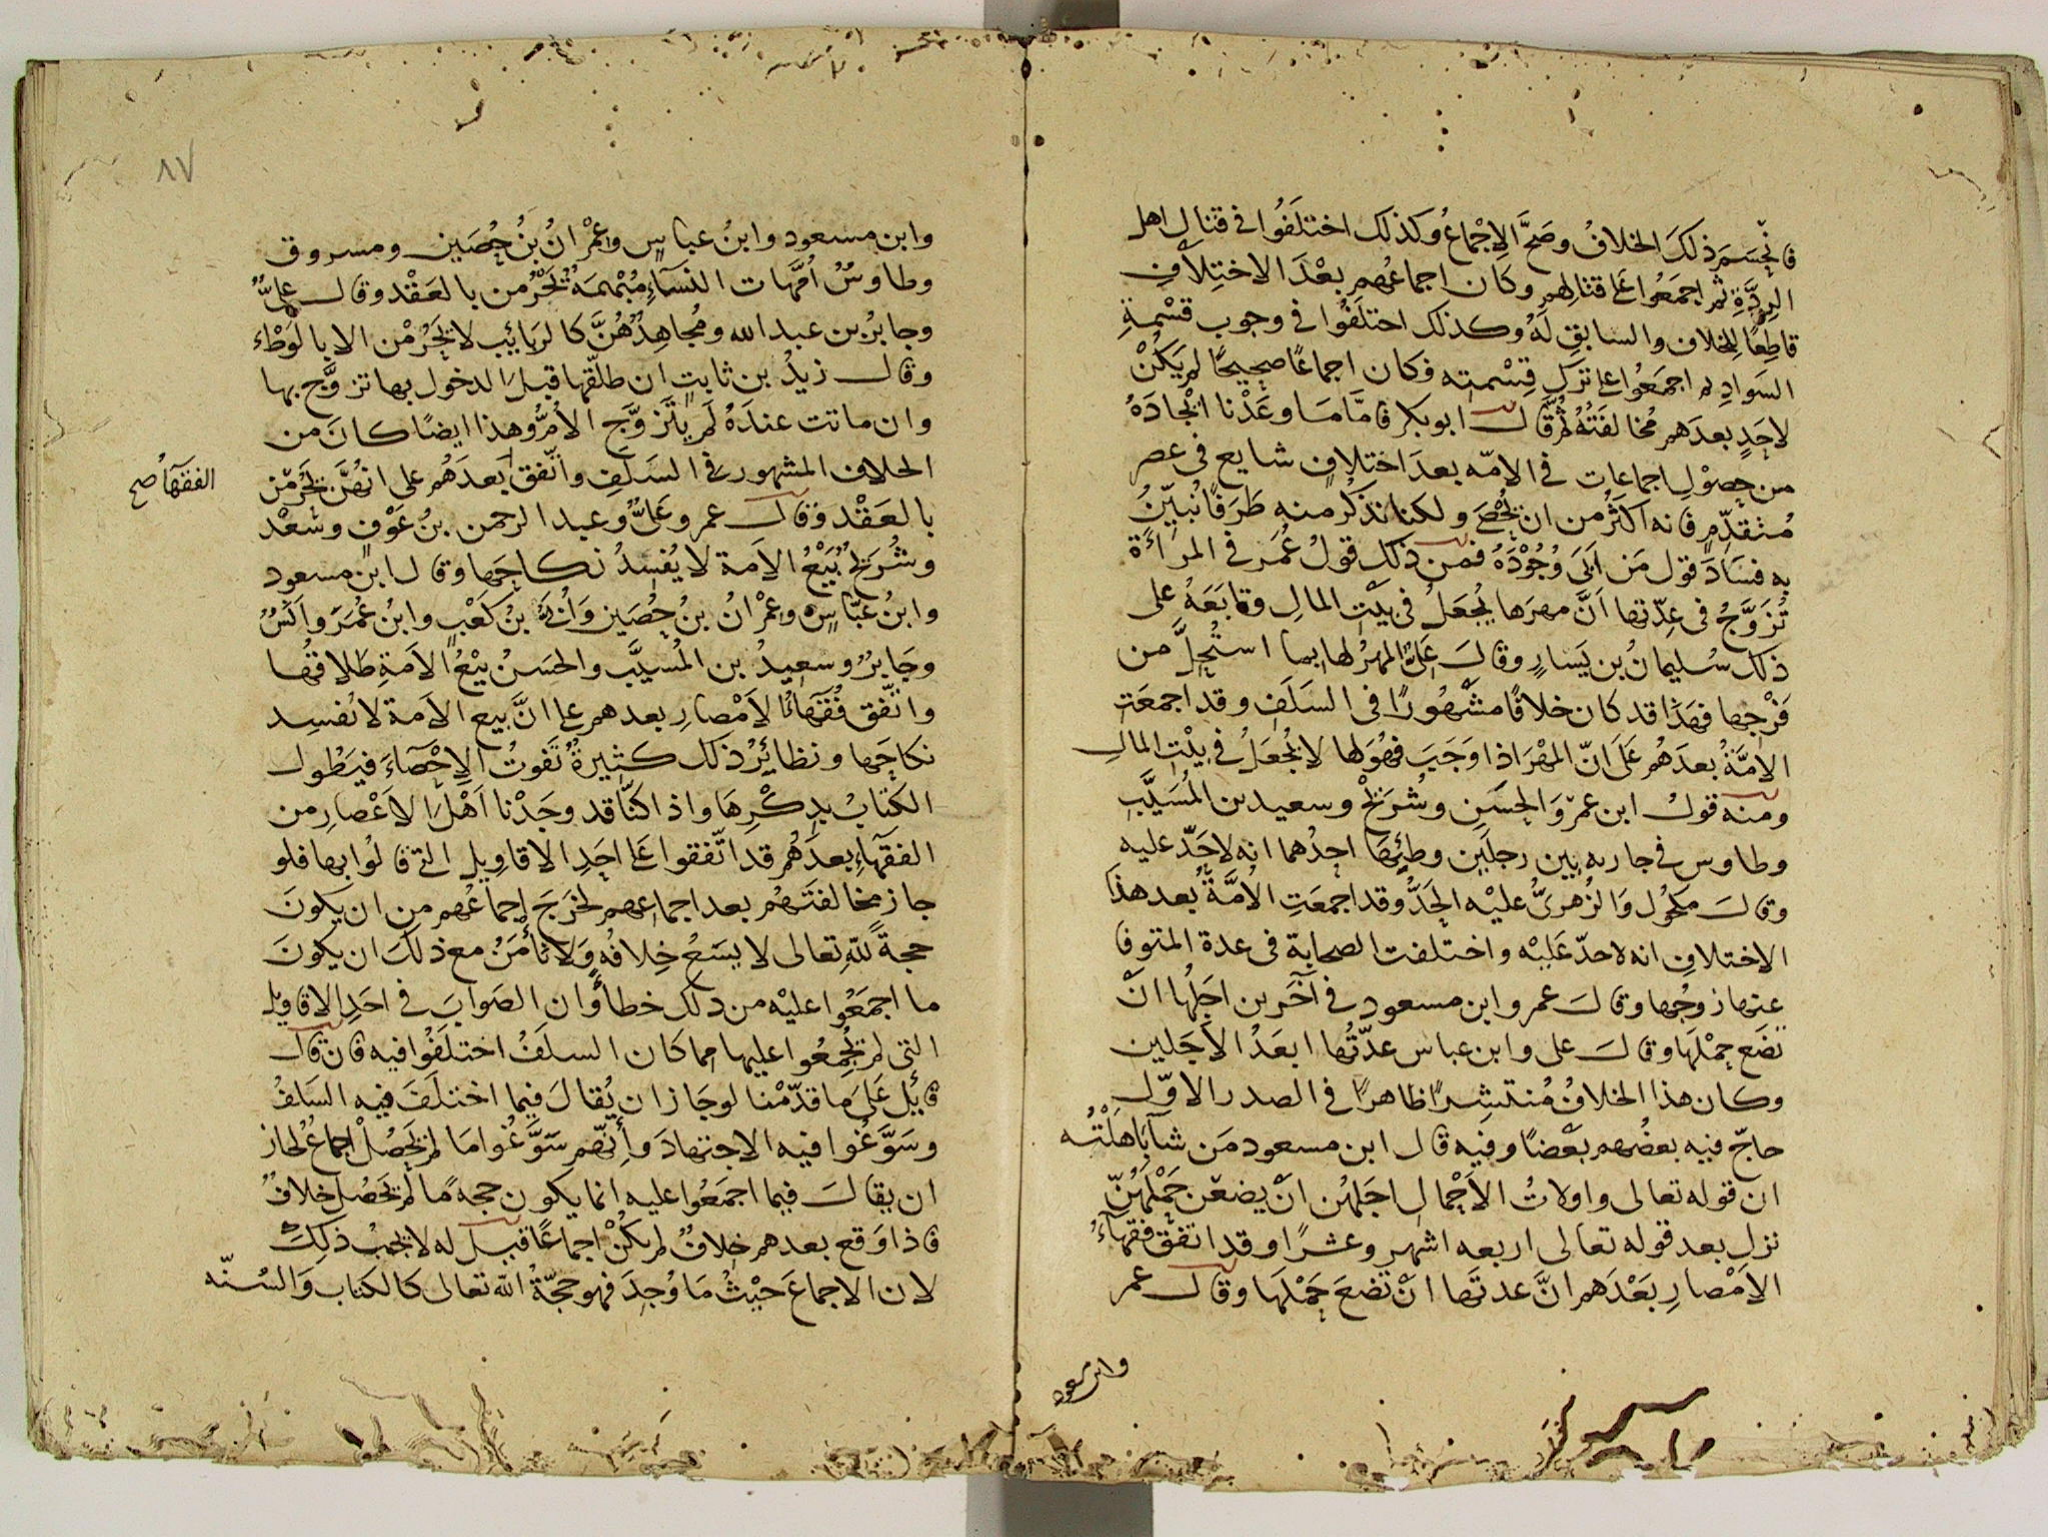 فانحسم ذلك الخلاف وصح الإجماع وكذلك اختلفوا في قتال اهل
الردة ثم اجمعوا على قتالهم وكان اجماعهم بعد الاختلاف
قاطعا للخلاف والسابق له وكذلك اختلفوا في وجوب قسمة
السواد ثم اجمعوا على ترك قسمته فكان اجماعا صحيحا لم يكن
لاحد بعدهم مخالفته ثم قال ابو بكر فاما ما وعدنا ايجاده
من حصول اجماعات في الامه بعد اختلاف شايع في عصر
متقدم فانه اكثر من ان يحصى ولكنا نذكر منه طرفا نبين
به فساد قول من ابى وجوده فمن ذلك قول عمر في المراة
تزوج في عدتها ان مهرها يجعل في بيت المال وتابعه على
ذلك سليمان بن يسار وقال على المهر لها بما استحل من
فرجها فهذا قد كان خلافا مشهورا في السلف وقد اجمعت
الامة بعدهم على ان المهر اذا وجب فهو لها لا يجعل في بيت المال
ومنه قول ابن عمر والحسن وشريح وسعيد بن المسيب
وطاوس في جاريه بين رجلين وطئها احدهما انه لا حد عليه
وقال مكحول والزهري عليه الحد وقد اجمعت الامة بعد هذا
الاختلاف انه لا حد عليه واختلفت الصحابة في عدة المتوفا
عنها زوجها وقال عمر وابن مسعود في آخرين اجلها ان
تضع حملها وقال على وابن عباس عدتها ابعد الاجلين
وكان هذا الخلاف منتشرا ظاهرا في الصدر الاول
حاج فيه بعضهم بعضا وفيه قال ابن مسعود من شآ باهلته
ان قوله تعالى واولات الاحمال اجلهن ان يضعن حملهن
نزل بعد قوله تعالى اربعه اشهر وعشرا وقد اتفق فقهاء
الامصار بعدهم ان عدتها ان تضع حملها وقال عمر
وابن مسعود
٨٧
وابن مسعود وابن عباس وعمران بن حصين ومسروق
وطاوس امهات النسآء مبهمة تحرمن بالعقد وقال على
وجابر بن عبد الله ومجاهد هن كالربائب لا يحرمن الا بالوطء
وقال زيد بن ثابت ان طلقها قبل الدخول بها تزوج بها
وان ماتت عنده لم يتزوج الام وهذا ايضا كان من
الخلاف المشهور في السلف واتفق بعدهم على انهن يحرمن
الفقهآ صح
بالعقد وقال عمر وعلى وعبد الرحمن بن عوف وسعد
وشريح بيع الامة لا يفسد نكاحها وقال ابن مسعود
وابن عباس وعمران بن حصين وأبي بن كعب وابن عمر وانس
وجابر وسعيد بن المسيب والحسن بيع الامة طلاقها
واتفق فقهآء الامصار بعدهم على ان بيع الامة لا يفسد
نكاحها ونظائر ذلك كثيرة تفوت الاحصآء فيطول
الكتاب بذكرها واذا كنا قد وجدنا اهل الاعصار من
الفقهآء بعدهم قد اتفقوا على احد الاقاويل التي قالوا بها فلو
جاز مخالفتهم بعد اجماعهم لخرج اجماعهم من ان يكون
حجة لله تعالى لا يسع خلافه ولا تأمن مع ذلك ان يكون
ما اجمعوا عليه من ذلك خطأ وان الصواب في احد الاقاويل
التي لم يجمعوا عليها مما كان السلف اختلفوا فيه فان قال
قايل على ما قدمنا لو جاز ان يقال فيما اختلف فيه السلف
وسوغوا فيه الاجتهاد وانهم سوغوا ما لم يحصل اجماع لجاز
ان يقال فيما اجمعوا عليه انما يكون حجة ما لم يحصل خلاف
فاذا وقع بعدهم خلاف لم يكن اجماعا قيل له لا يجب ذلك
لان الاجماع حيث ما وجد فهو حجة الله تعالى كالكتاب والسنه